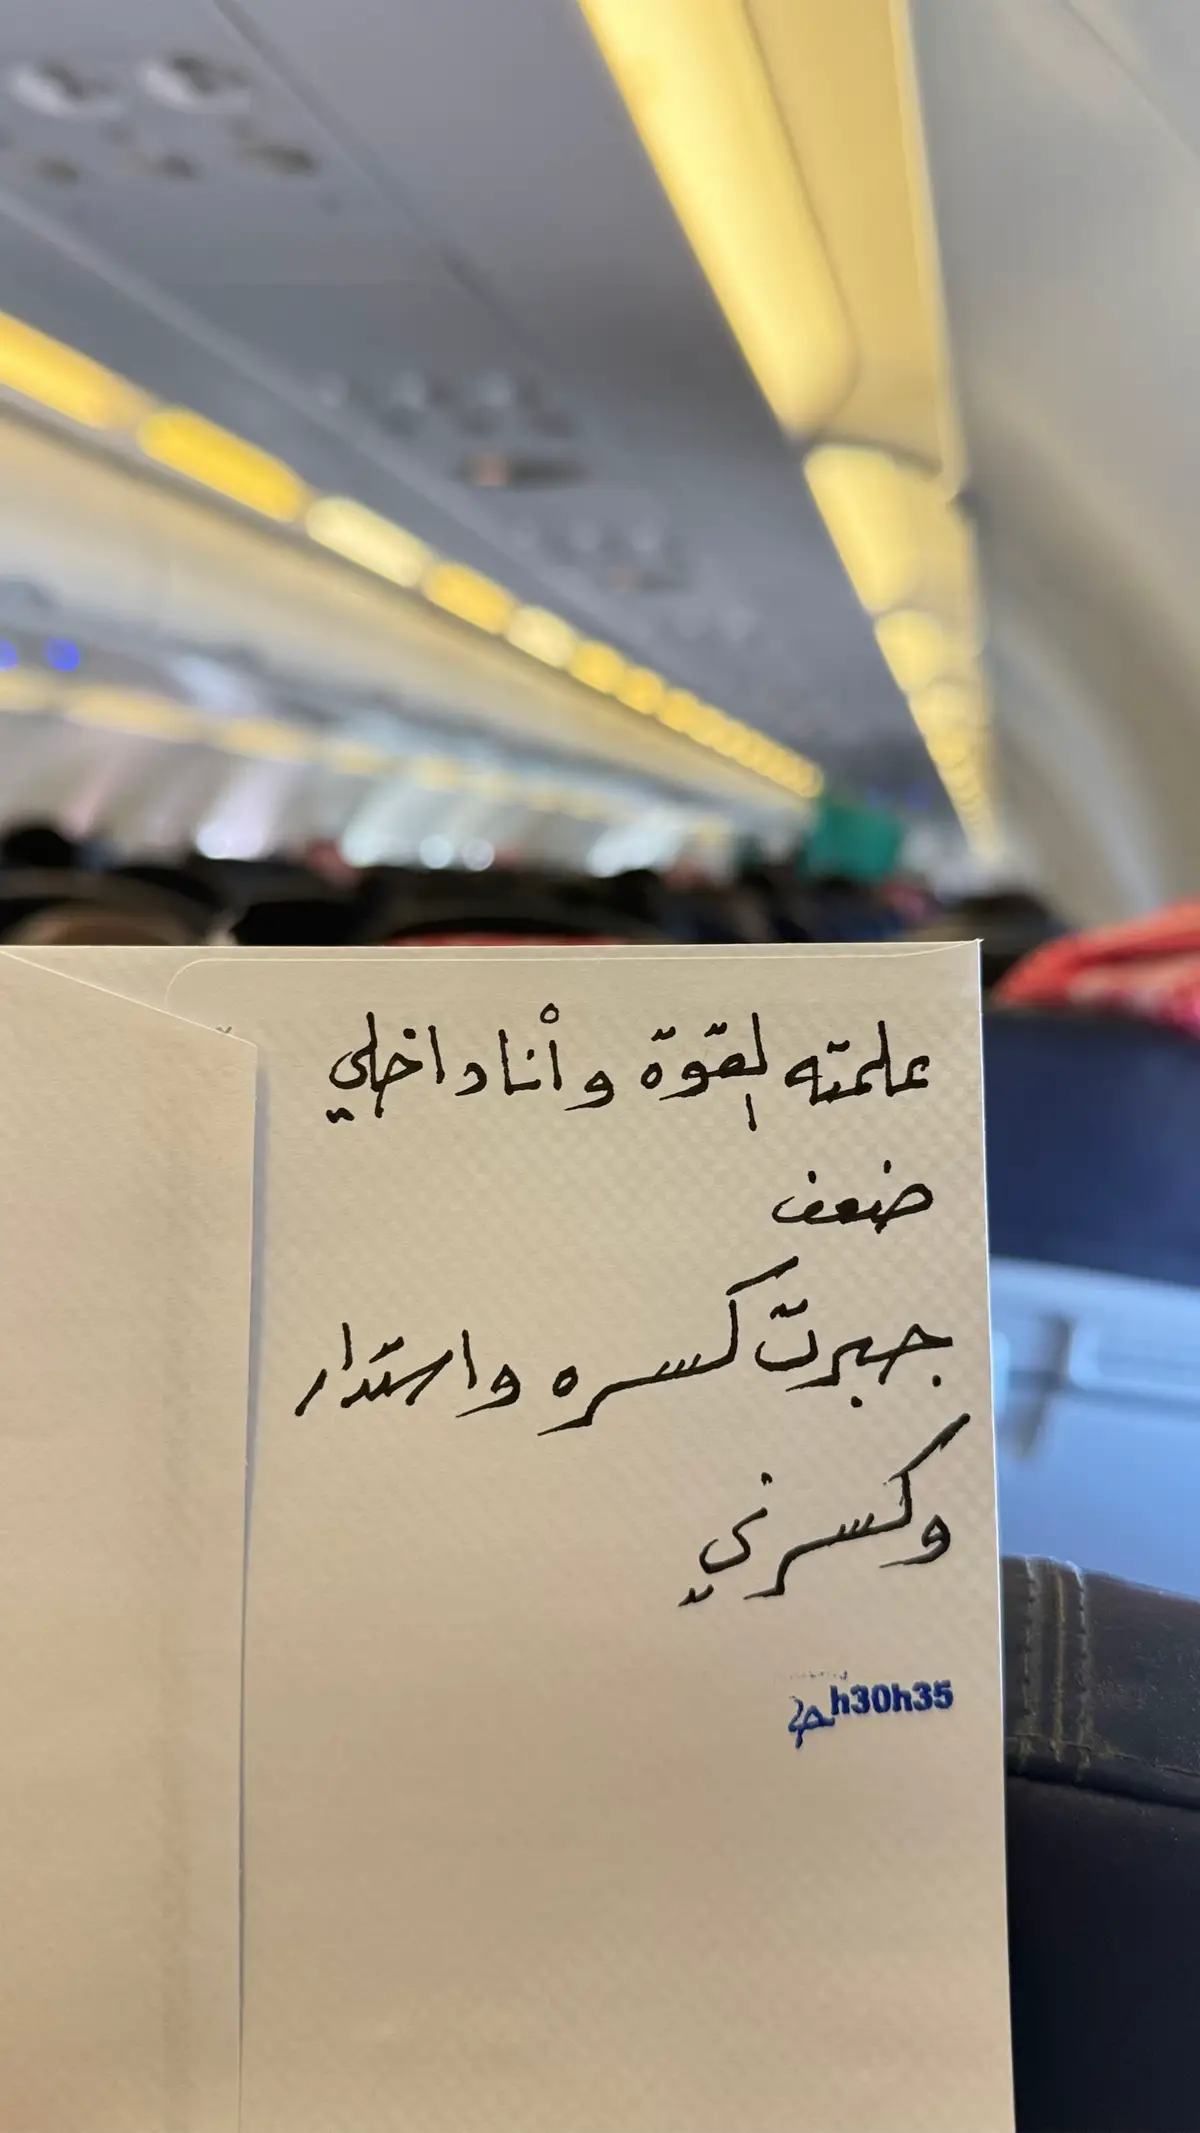 علمته القوّة وأنا داخلي
ضعف
جبرت كسره واستدار
وكسرني
h30h35